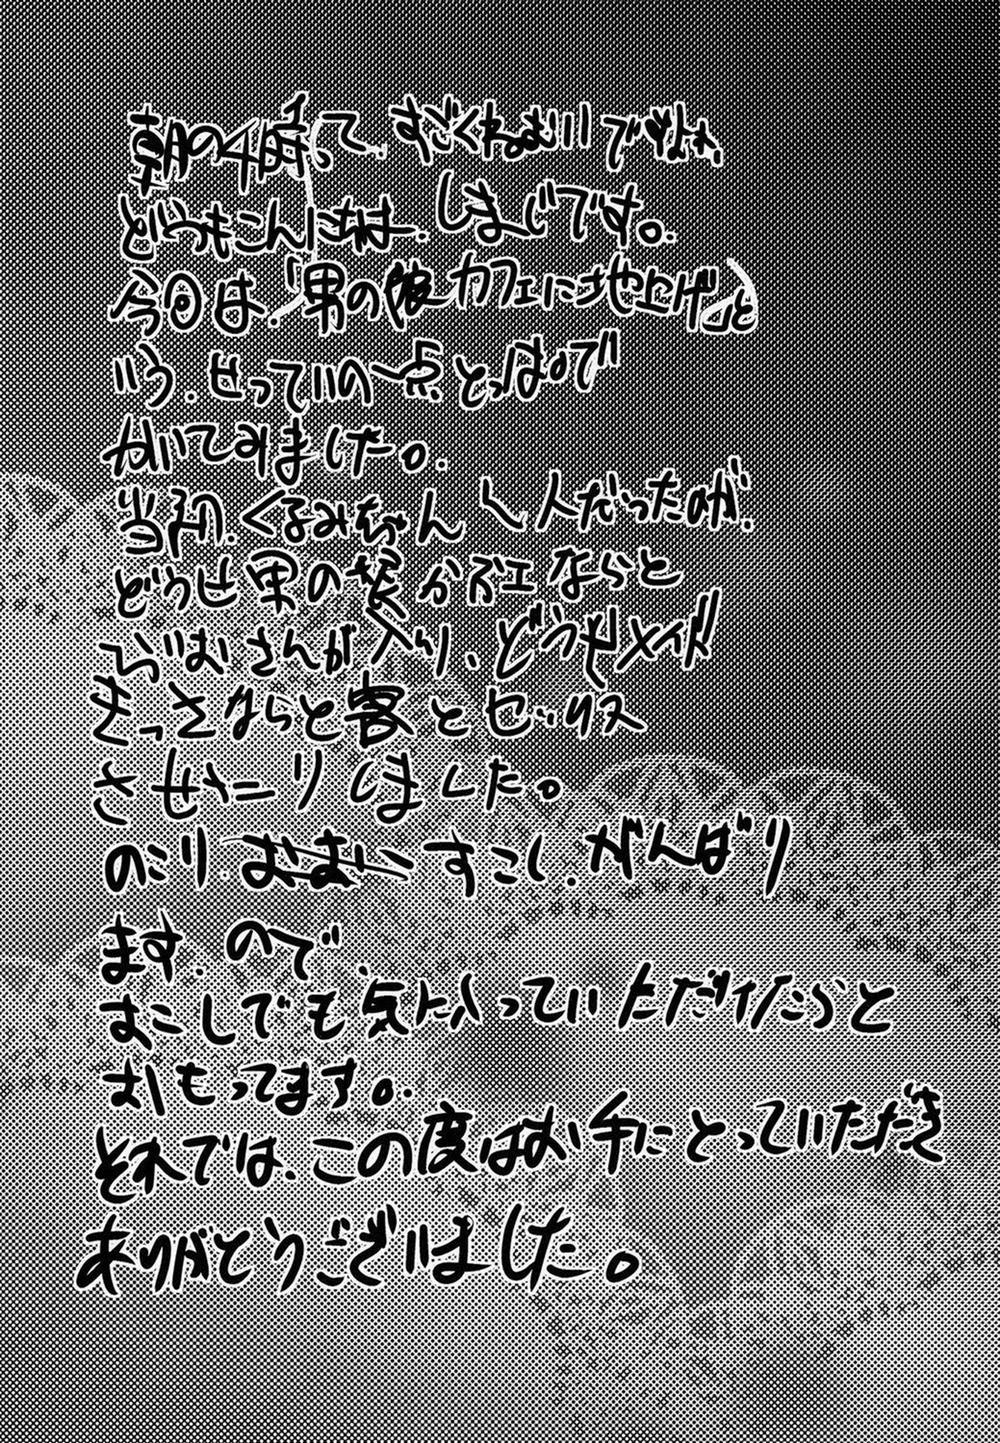 朝の4時って、すごくねむいですよね、
どうもこんにちは、しまじです。
今回は、「男の娘カフェに地上げ」と
いう、せっていの一点とっぱで
かいてみました。
当初、くるみちゃん1人だったのが、
どうせ男の娘カフェならと
さんが入り、どうせメイド
きっさならと客とセックス
させたりしました。
のこり すこし、がんばり
ます、ので、
すこしでも気に入っていただけたらと
おもってます。
それでは、この度はお手にとっていただき
ありがとうございました。